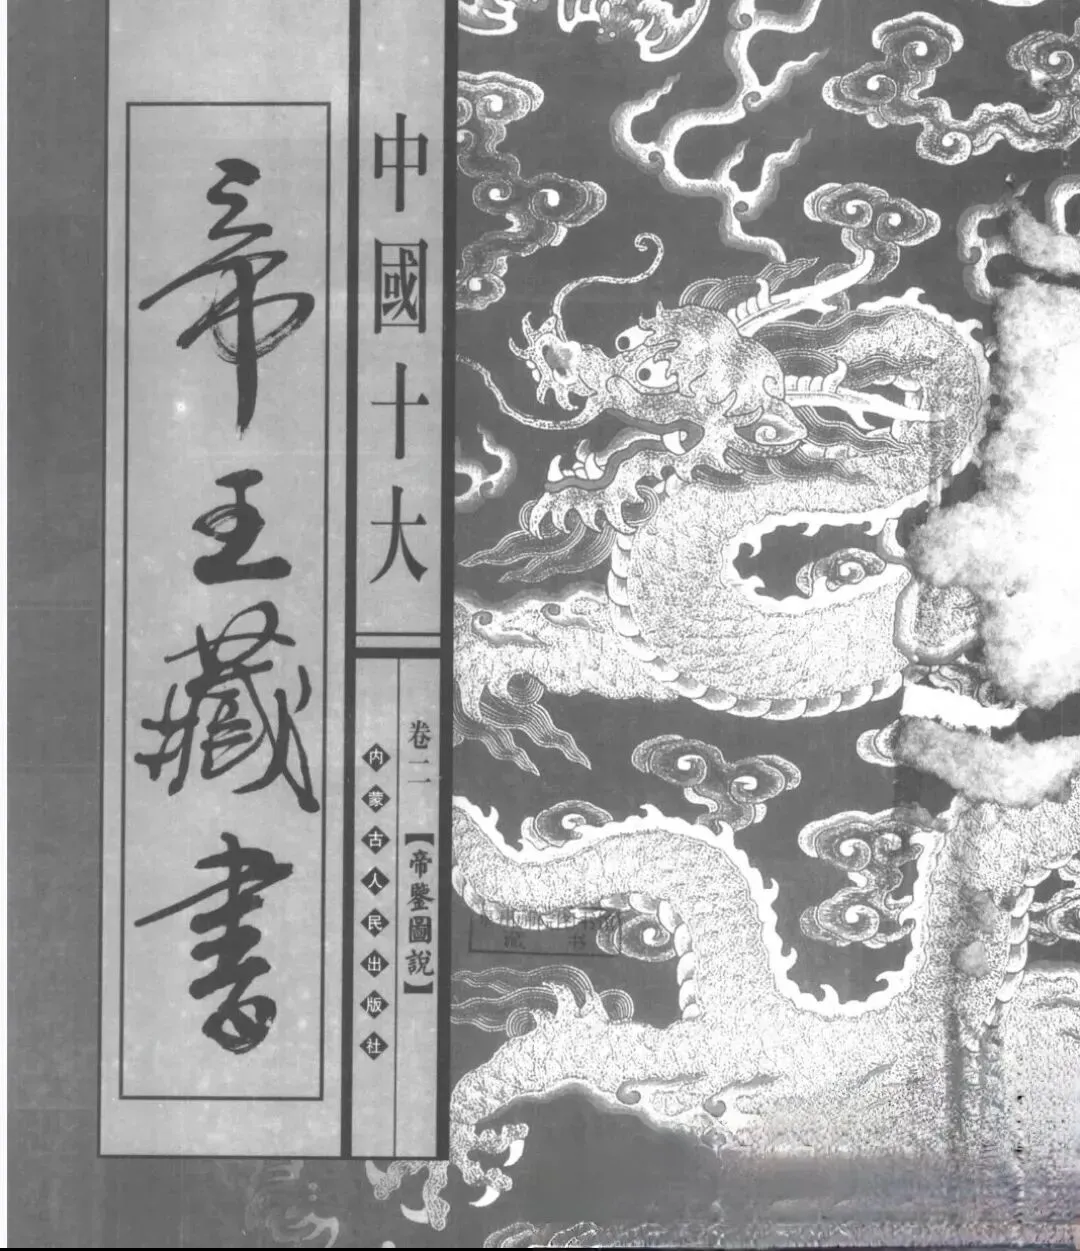 中國十大
帝王藏書
卷二【帝鑒圖說】
内蒙古人民出版社
藏书